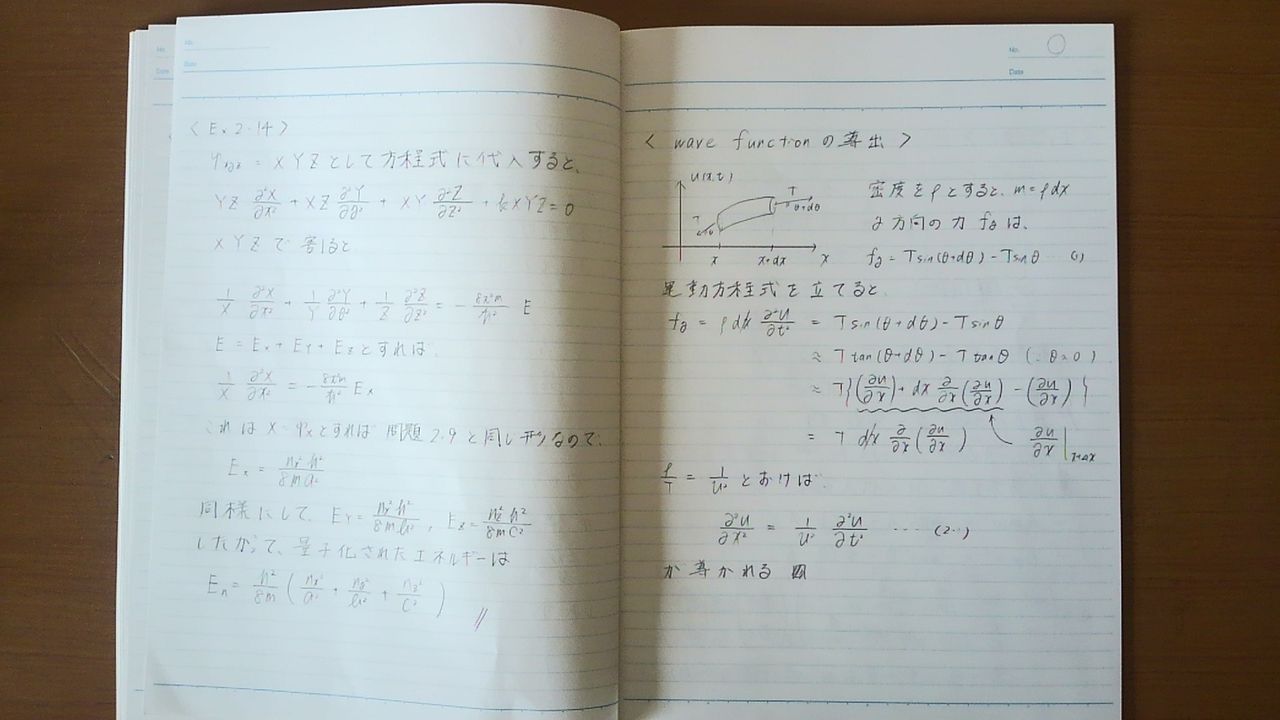 No.
Date
No.
Date
〈 Ex 2.14 〉
Ψxyz = XYZ として方程式に代入すると、
YZ ∂²X/∂x² + XZ ∂²Y/∂y² + XY ∂²Z/∂z² + kXYZ = 0
XYZ で割ると
1/X ∂²X/∂x² + 1/Y ∂²Y/∂y² + 1/Z ∂²Z/∂z² = - 8π²m/h² E
E = Ex + EY + Ez とすれば、
1/X ∂²X/∂x² = - 8π²m/h² Ex
これは X = Ψx とすれば 問題 2.9 と同じ形なので、
Ex = nx² h²/8ma²
同様にして、 EY = ny² h²/8mb² , Ez = nz² h²/8mc²
したがって、量子化されたエネルギーは
En = h²/8m ( nx²/a² + ny²/b² + nz²/c² )
No.
Date
〈 wave function の導出 〉
u(x,t)
T
θ
T
θ+dθ
x
x+dx
x
密度を ρ とすると、m = ρdx
y 方向の力 fy は、
fy = T sin(θ+dθ) - T sinθ … (1)
運動方程式を立てると、
fy = ρdx ∂²u/∂t² = T sin(θ+dθ) - T sinθ
≈ T tan(θ+dθ) - T tanθ (∵ θ≈0)
≈ T{(∂u/∂x) + dx ∂/∂x (∂u/∂x) - (∂u/∂x)}
= T dx ∂/∂x (∂u/∂x)
∂u/∂x |x+dx
ρ/T = 1/v² とおけば、
∂²u/∂x² = 1/v² ∂²u/∂t² … (2…)
が導かれる